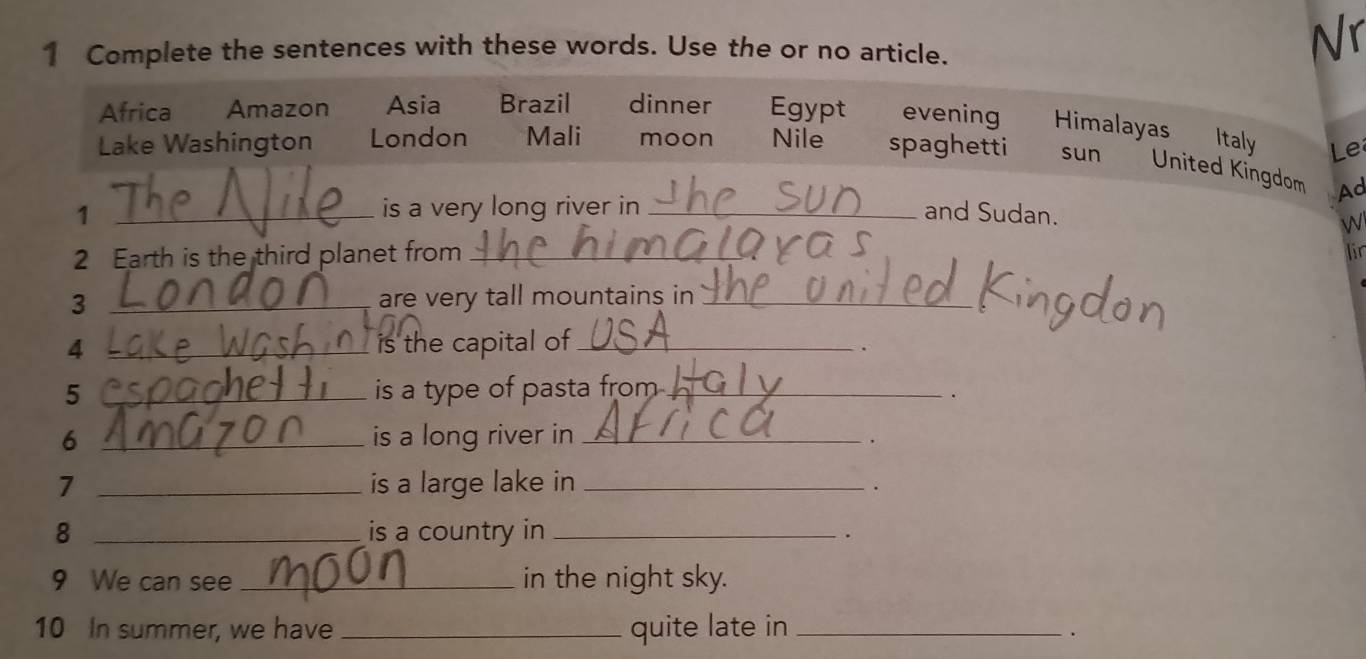 Nr
1 Complete the sentences with these words. Use the or no article.
Africa Amazon Asia Brazil dinner Egypt evening Himalayas Italy
Lake Washington London Mali moon Nile spaghetti sun United Kingdom
1 The Nile is a very long river in the sun and Sudan.
2 Earth is the third planet from the himalaras
3 London are very tall mountains in the united Kingdon.
4 Lake Washinton is the capital of USA.
5 espaghetti is a type of pasta from Italy.
6 Amazon is a long river in Africa.
7 is a large lake in .
8 is a country in .
9 We can see moon in the night sky.
10 In summer, we have quite late in .
Ad